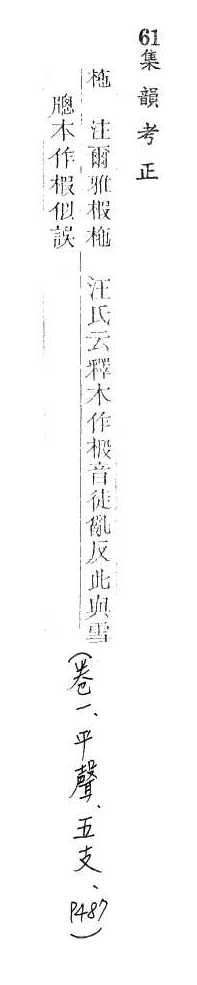 61集韻考正
柂 注爾雅椵柂 汪氏云釋木作椴音徒亂反此與雪
牕本作椵似誤
(卷一、平聲、五支、P487)